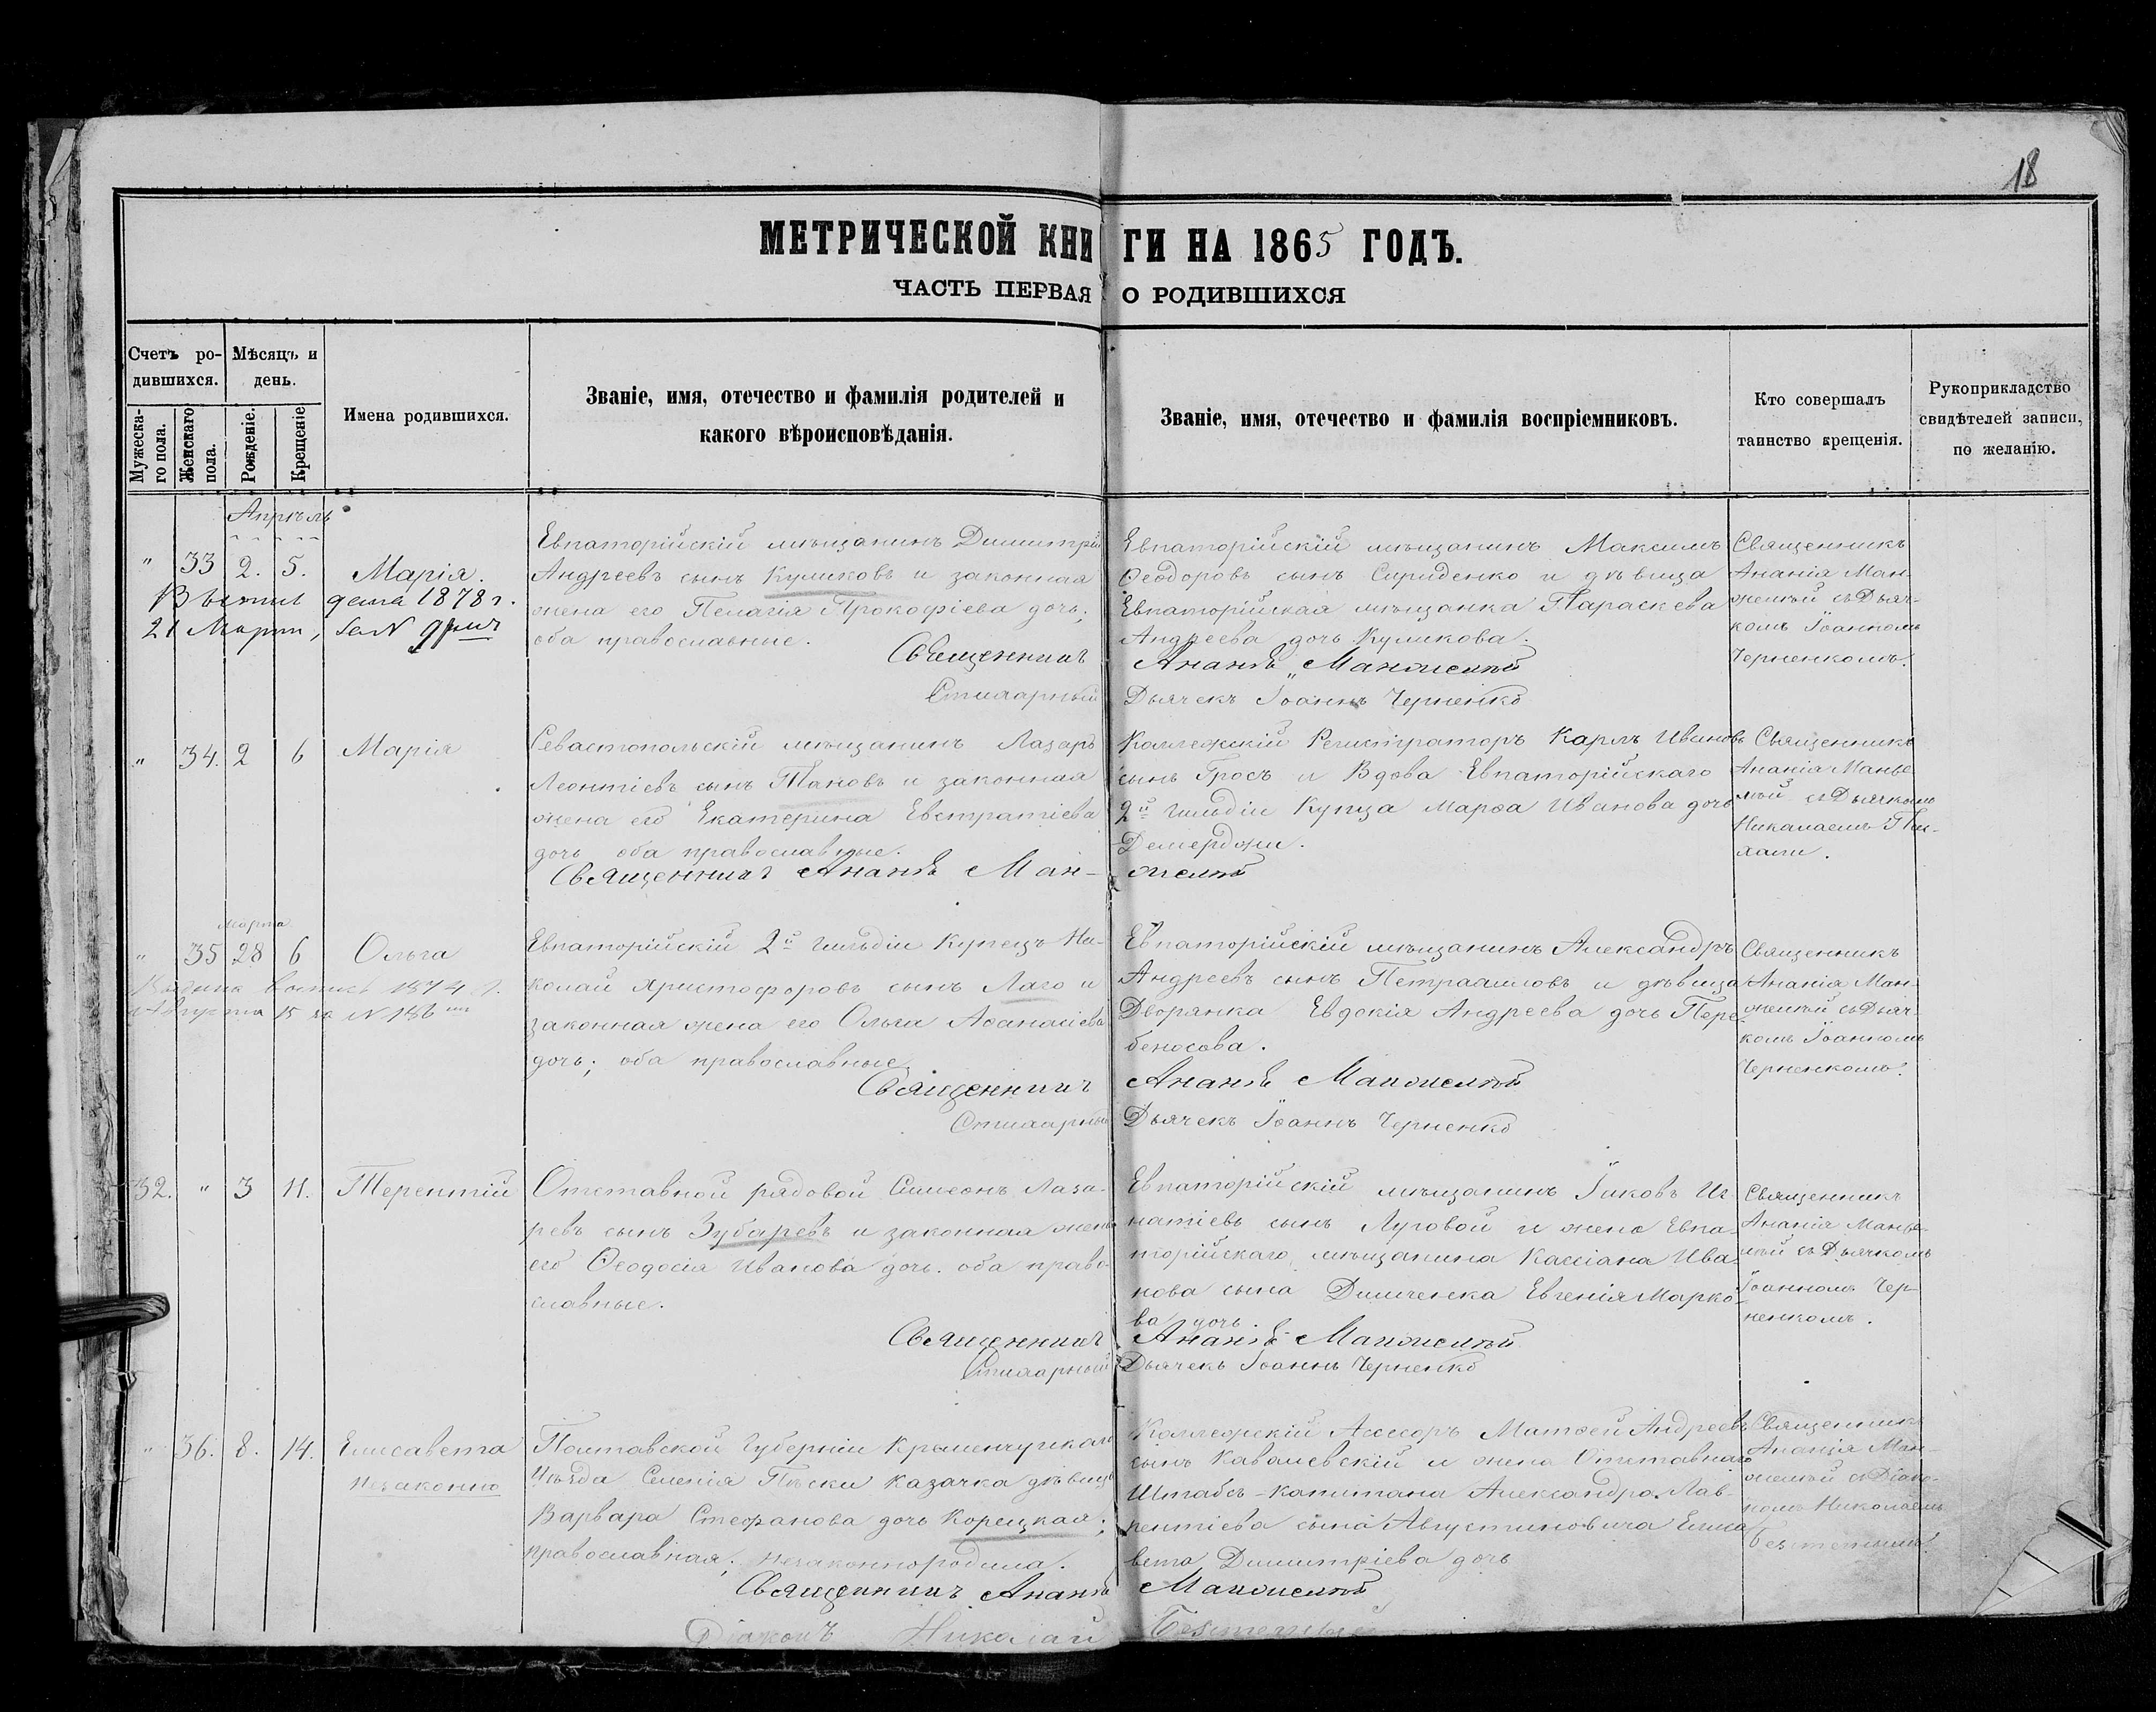 18
МЕТРИЧЕСКОЙ КНИГИ НА 1865 ГОДЪ.
ЧАСТЬ ПЕРВАЯ О РОДИВШИХСЯ
Счетъ ро-
дившихся.
Мужеска-
го пола.
Женскаго
пола.
Мѣсяцъ и
день.
Рожденіе.
Крещеніе
Имена родившихся.
Званіе, имя, отечество и фамилія родителей и
какого вѣроисповѣданія.
Званіе, имя, отечество и фамилія воспріемниковъ.
Кто совершалъ
таинство крещенія.
Рукоприкладство
свидѣтелей записи,
по желанію.
Апрѣль
" 33 2. 5. Марія.
1878 г.
21 Марта,
Евпаторійскій мѣщанинъ Димитрій
Андреевъ сынъ Куликовъ и законная
жена его Пелагія Прокофіева дочь;
оба православные.
Евпаторійскій мѣщанинъ Максимъ
Ѳеодоровъ сынъ Сириденко и дѣвица
Евпаторійская мѣщанка Параскева
Андреева дочь Куликова.
Священникъ
Ананія Ман-
желѣй съ Дьяч-
комъ Іоанномъ
Черненкомъ.
Священникъ Ананія Манжелѣй
Дьячекъ Іоаннъ Черненко
" 34. 2 6 Марія
Севастопольскій мѣщанинъ Лазарь
Леонтіевъ сынъ Пановъ и законная
жена его Екатерина Евстратіева
дочь оба православные.
Коллежскій Регистраторъ Карлъ Ивановъ
сынъ Гросъ и Вдова Евпаторійскаго
2й гильдіи Купца Марѳа Иванова дочь
Демерджи.
Священникъ
Ананія Манже-
лѣй съ Дьячкомъ
Николаемъ
Священникъ Ананія Манжелѣй
Марта
" 35 28 6 Ольга
1874 г.
Августа 15 за № 186
Евпаторійскій 2й гильдіи Купецъ Ни-
колай Христофоровъ сынъ Лаго и
законная жена его Ольга Аѳанасіева
дочь; оба православные.
Евпаторійскій мѣщанинъ Александръ
Андреевъ сынъ и дѣвица
Дворянка Евдокія Андреева дочь Пере-
беносова.
Священникъ
Ананія Ман-
желѣй съ Дьяч-
комъ Іоанномъ
Черненкомъ.
Священникъ Ананія Манжелѣй
Дьячекъ Іоаннъ Черненко
32. " 3 11. Терентій
Отставной рядовой Симеонъ Лаза-
ревъ сынъ Зубаревъ и законная жена
его Ѳеодосія Иванова дочь. оба право-
славные.
Евпаторійскій мѣщанинъ Іаковъ Иг-
натіевъ сынъ Луговой и жена Евпа-
торійскаго мѣщанина Кассіана Ива-
нова сына Димченка Евгенія Марко-
ва дочь.
Священникъ
Ананія Манже-
лѣй съ Дьячкомъ
Іоанномъ Чер-
ненкомъ.
Священникъ Ананія Манжелѣй
Дьячекъ Іоаннъ Черненко
" 36. 8. 14. Елисавета
незаконно
Полтавской Губерніи Крыменчугскаго
Уѣзда Селенія Пѣски казачка дѣвица
Варвара Стефанова дочь Корецкая;
православная; незаконнородила.
Коллежскій Ассесоръ Матѳей Андреевъ
сынъ Ковалевскій и жена Отставнаго
Штабсъ-Капитана Александра Лав-
рентіева сына Августиновича Елиса-
вета Димитріева дочь
Священникъ
Ананія Ман-
желѣй съ Діако-
номъ Николаемъ
Священникъ Ананія Манжелѣй
Діаконъ Николай